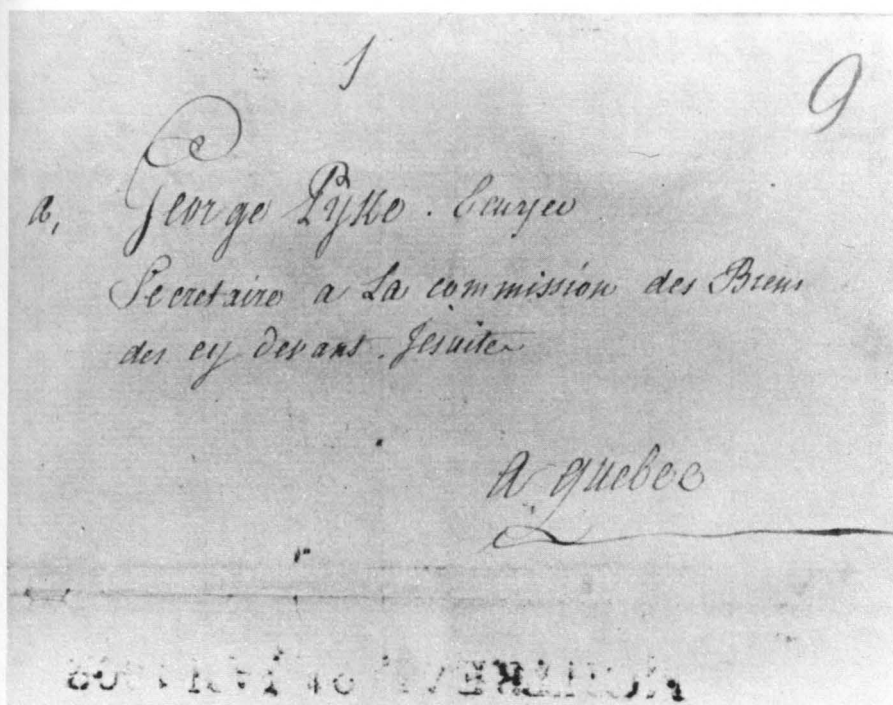 1
9
a, George Pyke. Ecuyer
Secretaire a La commission des Biens
des cy devant. Jesuites
a quebec